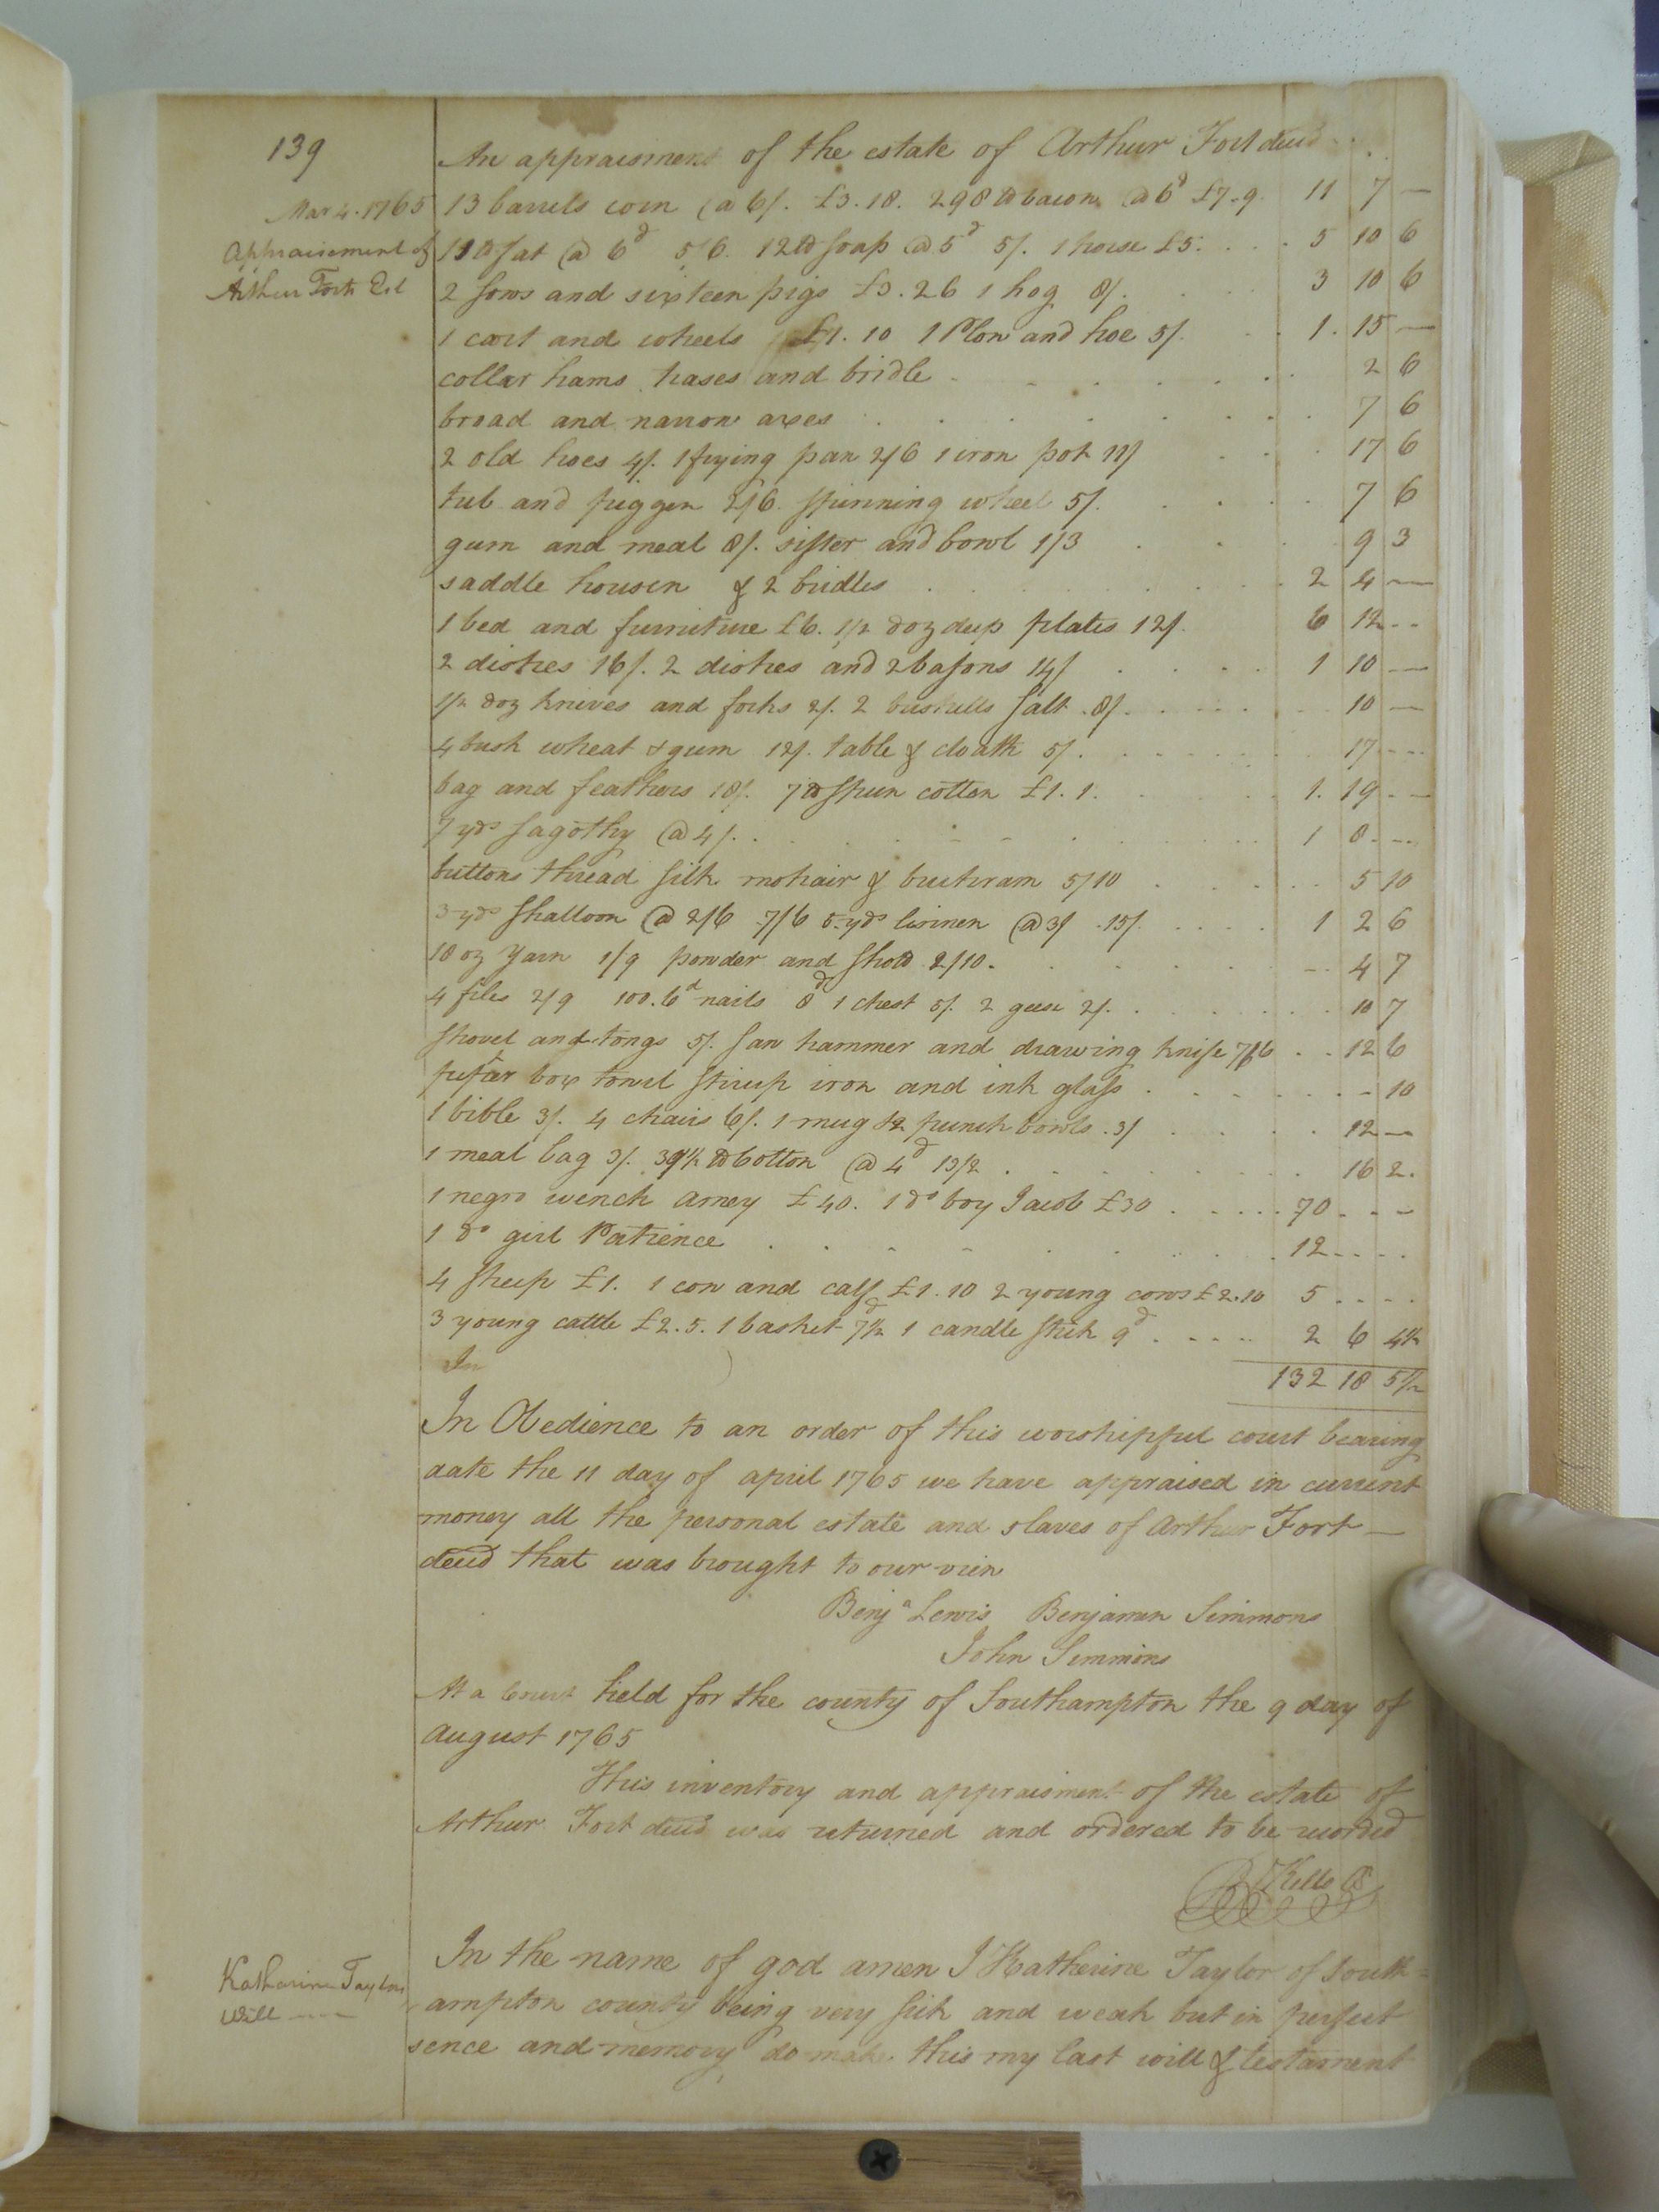 139
Mar 4. 1765
Appraisement of
Arthur Forts Est
An appraisment of the estate of Arthur Fort decd
13 barrels corn @ 6/. £3.18. 298 lb bacon @ 6d £7.9. 11 7 —
11 lb fat @ 6d 5/6. 12 lb soap @ 5d 5/. 1 horse £5. 5 10 6
2 sows and sixteen pigs £3.2.6 1 hog 8/. 3 10 6
1 cart and wheels £1.10 1 Plow and hoe 5/. 1. 15 —
collar hams hases and bridle 2 6
broad and narrow axes 7 6
2 old hoes 4/. 1 frying pan 2/6 1 iron pot 11/ 17 6
tub and piggen 2/6. spinning wheel 5/. 7 6
gum and meal 8/. sifter and bowl 1/3 9 3
saddle housen & 2 bridles 2 4 —
1 bed and furniture £6. 1/2 doz deep plates 12/. 6 12 --
2 dishes 16/. 2 dishes and 2 basons 14/ 1 10 —
1/2 doz knives and forks 2/. 2 bushells salt .8/. 10 —
4 bush wheat & gum 12/. table & cloath 5/. 17 ---
bag and feathers 18/. 7 lb spun cotton £1.1. 1. 19 - —
7 yds sagothy @ 4/. 1 8 ---
buttons thread silk mohair & buckram 5/10 5 10
3 yds shalloon @ 2/6 7/6 5 yds linnen @ 3/ .15/. 1 2 6
10 oz yarn 1/9 powder and shott 2/10. 4 7
4 files 2/9 100. 6d nails 8d 1 chest 5/. 2 geese 2/. 10 7
shovel and tongs 5/. saw hammer and drawing knife 7/6 12 6
pepar box towel stirup iron and ink glass 10
1 bible 3/. 4 chairs 6/. 1 mug & 2 punch bowls .3/ 12 —
1 meal bag 3/. 39 1/2 lb Cotton @ 4d 13/2 16 2.
1 negro wench Amey £40. 1 do boy Jacob £30 70 - - -
1 do girl Patience 12 - - - -
4 sheep £1. 1 cow and calf £1.10 2 young cows £2.10 5 - - - -
3 young cattle £2.5. 1 basket 7 1/2 1 candle stick 9d 2 6 4 1/2
In
132 18 5 1/2
In Obedience to an order of this worshipful court bearing
date the 11 day of april 1765 we have appraised in current
money all the personal estate and slaves of Arthur Fort —
decd that was brought to our view
Benja Lewis Benjamin Simmons
John Simmons
At a Court held for the county of Southampton the 9 day of
August 1765
This inventory and appraisment of the estate of
Arthur Fort decd was returned and ordered to be recorded
R Kello CS
Katharine Taylors
Will ——
In the name of god amen I Katherine Taylor of South=
ampton county being very sick and weak but in perfect
sence and memory do make this my last will & testament